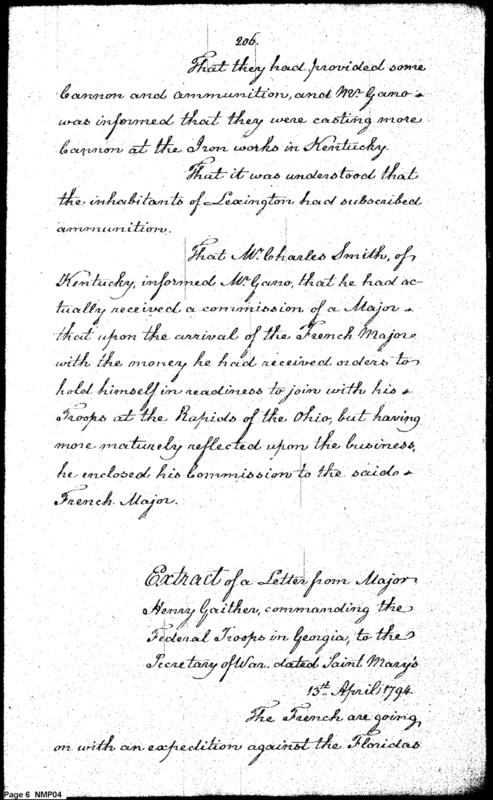 206.
That they had provided some
Cannon and ammunition, and Mr. Gano
was informed that they were casting more
Cannon at the Iron works in Kentucky.
That it was understood that
the inhabitants of Lexington had subscribed
ammunition.
That Mr. Charles Smith, of
Kentucky, informed Mr. Gano, that he had ac-
tually received a commission of a Major
that upon the arrival of the French Major
with the money he had received orders to
hold himself in readiness to join with his
Troops at the Rapids of the Ohio, but having
more maturely reflected upon the business,
he enclosed his Commission to the said
French Major.
Extract of a Letter from Major
Henry Gaither, commanding the
Federal Troops in Georgia, to the
Secretary of War. dated Saint Mary's
13th. April 1794.
The French are going
on with an expedition against the Floridas
Page 6 NMP04